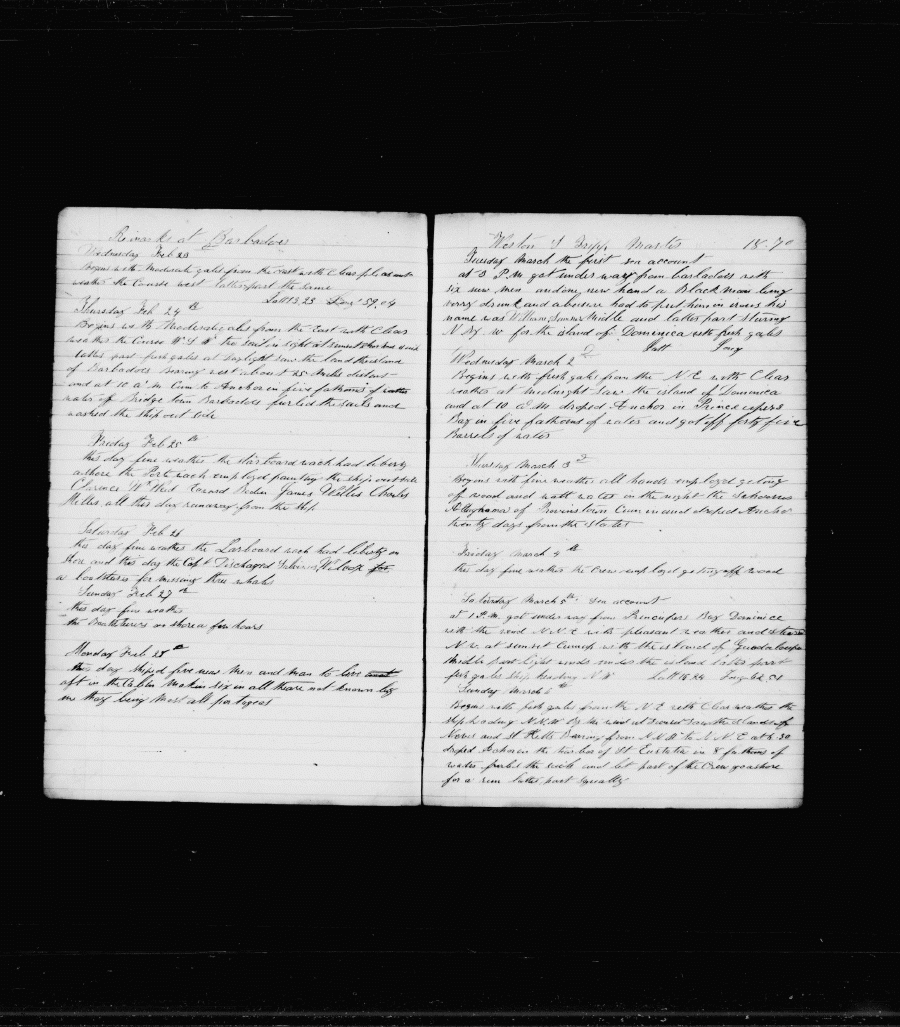 Remarks at Barbadoes
Wednesday Feb 23
Begins with Moderate gales from the East with Clear pleasant
weather the Course West latter part the same
Latt 13.23 Lon 59.04
Thursday Feb 24th
Begins with Moderate gales from the East with Clear
weather the Course W S W the sail in sight at sunset
latter part fresh gales at daylight saw the land the island
of Barbadoes bearing west about 25 miles distant
and at 10 A M Cum to Anchor in five fathoms of water
water of Bridge Town Barbadoes furled the sails and
washed the ship out side
Friday Feb 25th
this day fine weather the starboard wach had liberty
ashore the Port wach employd painting the ship out side
Clarence W West Edward James Willis Charles
Hellis all this day runaway from the ship
Saturday Feb 26
this day fine weather the Larboard wach had liberty on
shore and this day the Capt Discharged Wilcox for
a boatsterer for missing three whales
Sunday Feb 27th
this day fine weather
the Boatsterers on shore a few hours
Monday Feb 28th
this day shiped five new Men and Man to live
aft in the Cabin Makin six in all there not known by
me they being Most all portogees
Weston S Tripp Master 1870
Tuesday March the first sea account
at 3 P.M. got under way from barbadoes with
six new men and one new hand a Black man being
verry drunk and abusive had to put him in irons his
name was William Sumner Middle and latter part stearing
N by W for the island of Dominica with fresh gales
Latt Long
Wednesday March 2d
Begins with fresh gales from the N E with Clear
weather at midnight saw the island of Domenica
and at 10 A.M. droped Anchor in Prince rupers
Bay in five fathoms of water and got off forty five
Barrels of water
Thursday March 3d
Begins with fine weather all hands employd geting
off wood and water in the night the Schooner
Alleghania of Provinstown Cum in and droped Anchor
twenty days from the states
Friday March 4th
this day fine wather the Crew employd geting off wood
Saturday March 5th sea account
at 1 P.M. got under way from Princupers Bay Dominica
with the wind N.N.E with pleasant weather and
N.W. at sunset Cumup with the island of Guadaloupe
Middle part light winds under the island latter part
fresh gales ship heading N W Latt 16.24 Long 62.01
Sunday March 6th
Begins with fresh gales from the N E with Clear weather the
ship heading N.N.W by the wind at sunset saw the islands of
Neves and St Kitts Bearing from N.N.W to N.N.E at 6.30
droped Anchor in the harbor of St Eustatia in 8 fathoms of
water furled the sails and let part of the Crew go ashore
for a run latter part squally